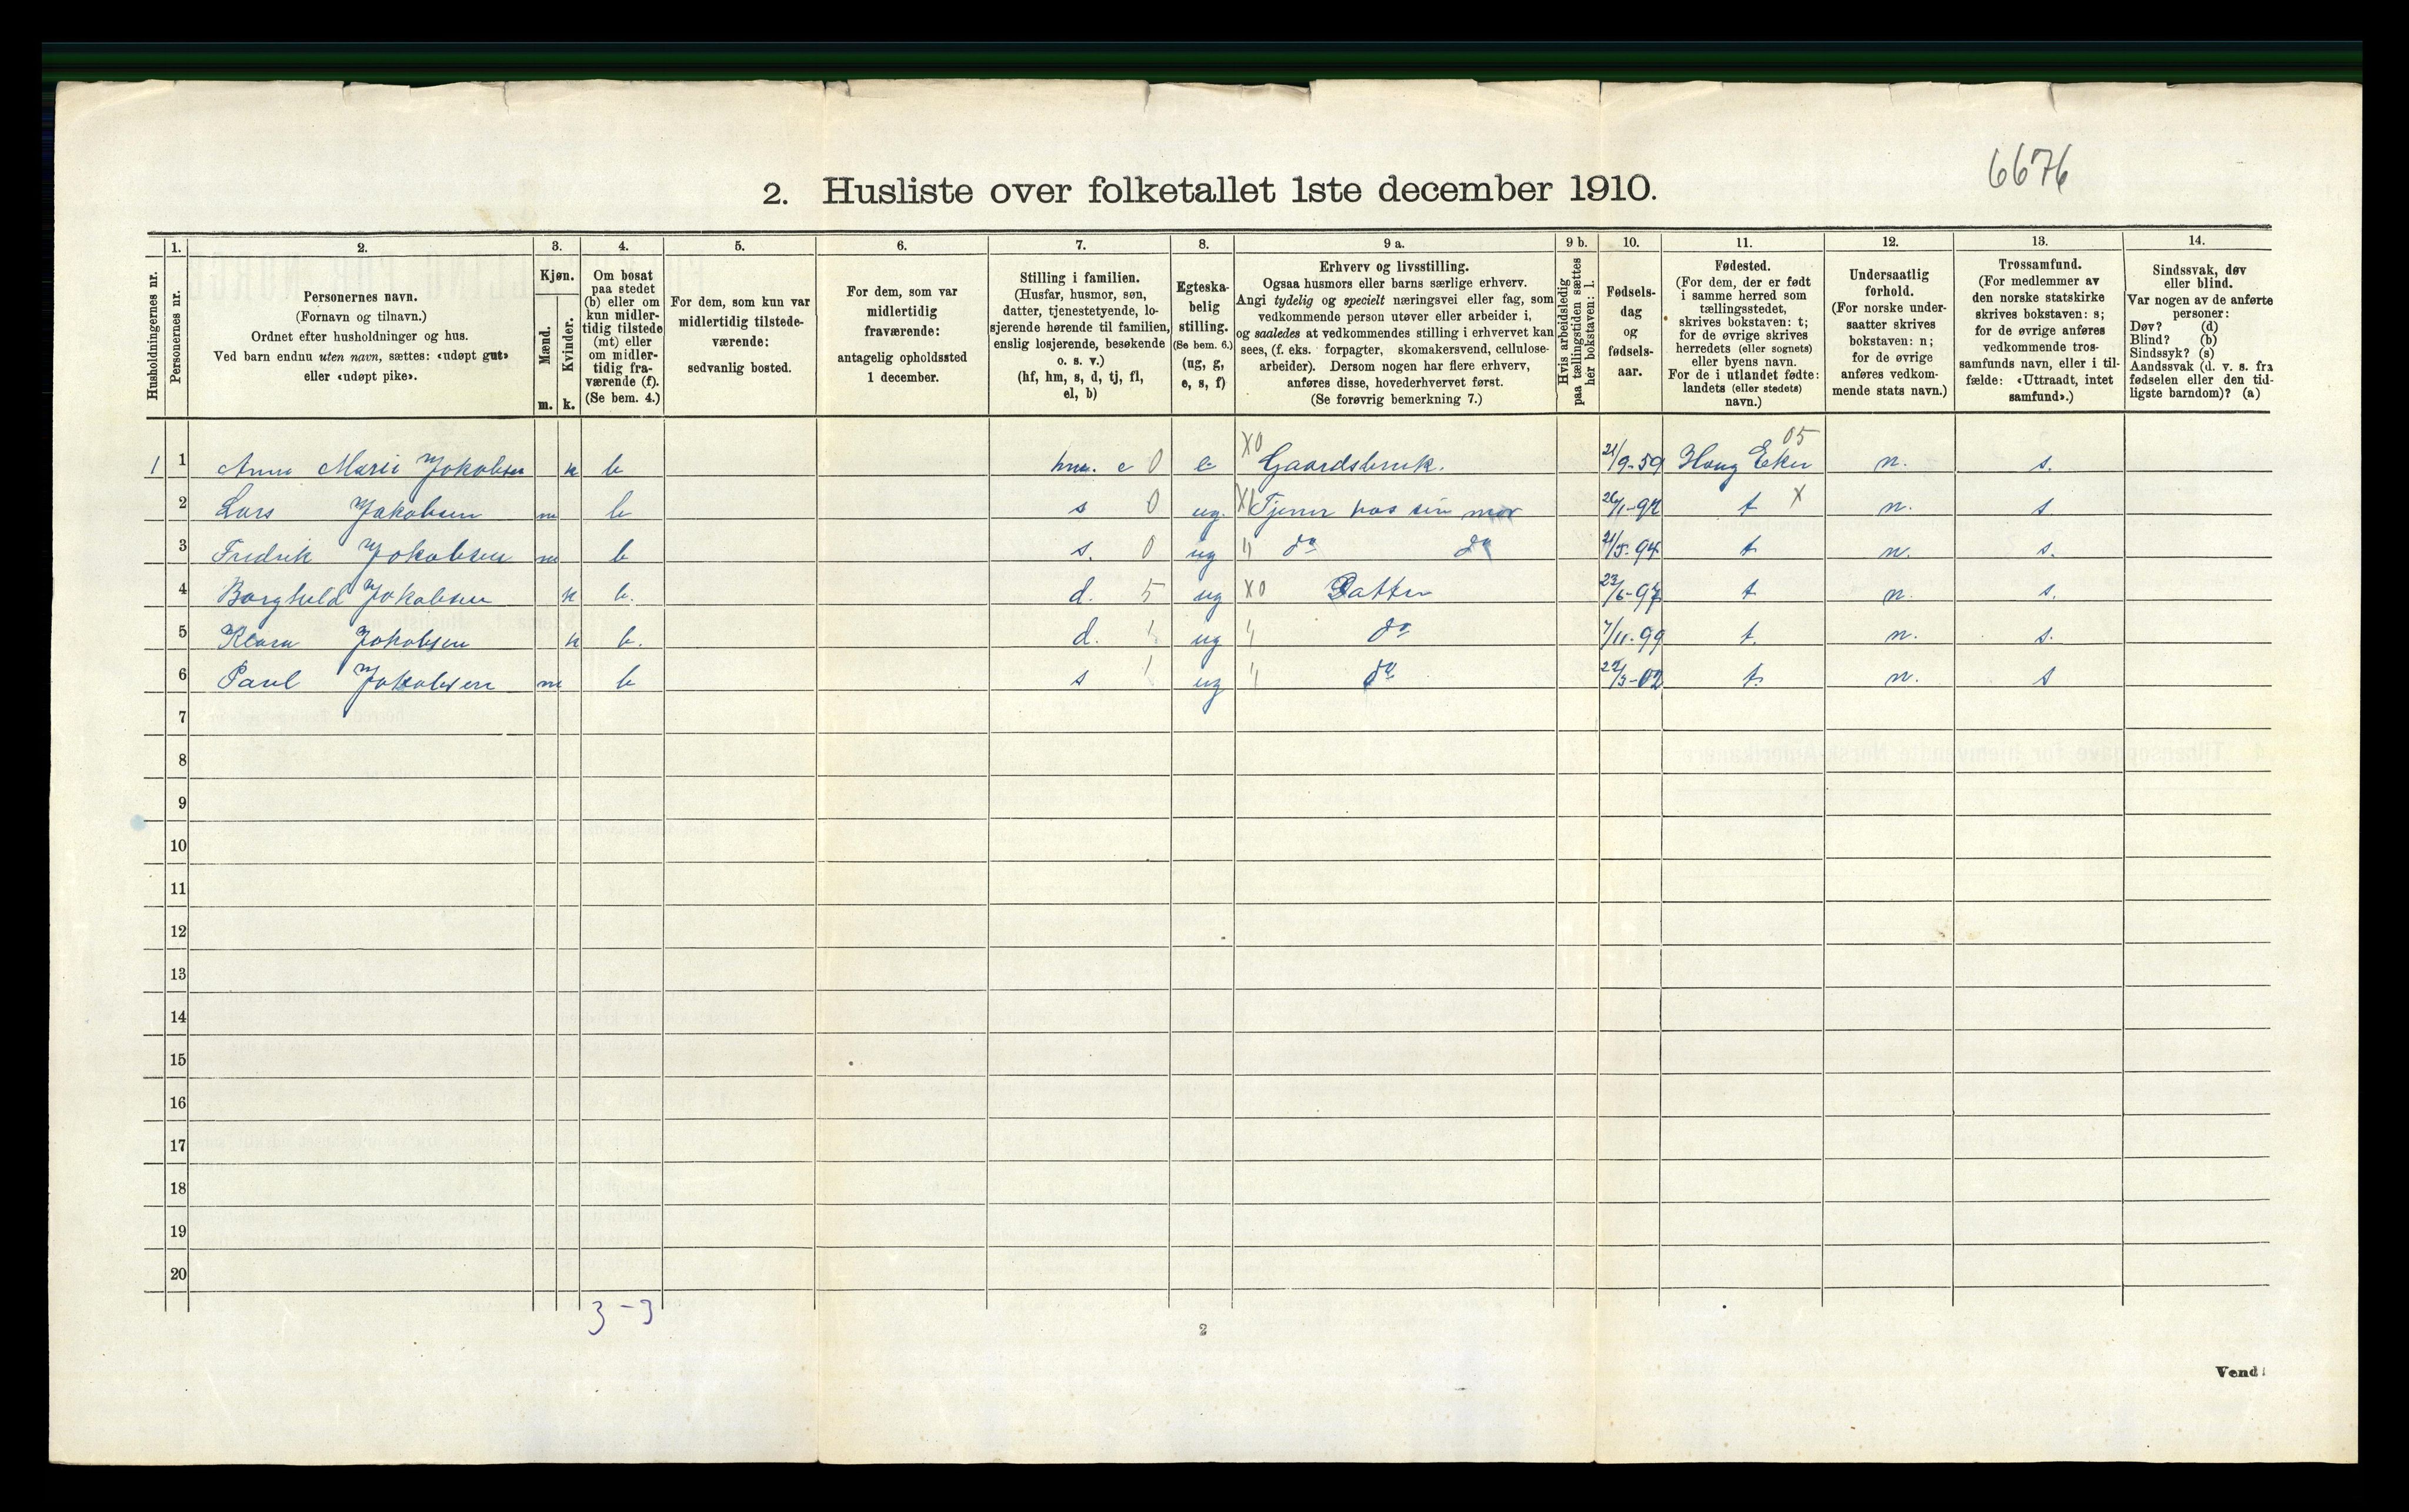 6676
2. Husliste over folketallet 1ste december 1910.
Husholdningernes nr.
1.
Personernes nr.
2.
Personernes navn.
(Fornavn og tilnavn.)
Ordnet efter husholdninger og hus.
Ved barn endnu uten navn, sættes: «udøpt gut»
eller «udøpt pike».
3.
Kjøn.
Mænd.
Kvinder.
m. k.
4.
Om bosat
paa stedet
(b) eller om
kun midler-
tidig tilstede
(mt) eller
om midler-
tidig fra-
værende (f).
(Se bem. 4.)
5.
For dem, som kun var
midlertidig tilstede-
værende:
sedvanlig bosted.
6.
For dem, som var
midlertidig
fraværende:
antagelig opholdssted
1 december.
7.
Stilling i familien.
(Husfar, husmor, søn,
datter, tjenestetyende, lo-
sjerende hørende til familien,
enslig losjerende, besøkende
o. s. v.)
(hf, hm, s, d, tj, fl,
el, b)
8.
Egteska-
belig
stilling.
(Se bem. 6.)
(ug, g,
e, s, f)
9 a.
Erhverv og livsstilling.
Ogsaa husmors eller barns særlige erhverv.
Angi tydelig og specielt næringsvei eller fag, som
vedkommende person utøver eller arbeider i,
og saaledes at vedkommendes stilling i erhvervet kan
sees, (f. eks. forpagter, skomakersvend, cellulose-
arbeider). Dersom nogen har flere erhverv,
anføres disse, hovederhvervet først.
(Se forøvrig bemerkning 7.)
9 b.
Hvis arbeidsledig
paa tællingstiden sættes
her bokstaven: l.
10.
Fødsels-
dag
og
fødsels-
aar.
11.
Fødested.
(For dem, der er født
i samme herred som
tællingsstedet,
skrives bokstaven: t;
for de øvrige skrives
herredets (eller sognets)
eller byens navn.
For de i utlandet fødte:
landets (eller stedets)
navn.)
12.
Undersaatlig
forhold.
(For norske under-
saatter skrives
bokstaven: n;
for de øvrige
anføres vedkom-
mende stats navn.)
13.
Trossamfund.
(For medlemmer av
den norske statskirke
skrives bokstaven: s;
for de øvrige anføres
vedkommende tros-
samfunds navn, eller i til-
fælde: «Uttraadt, intet
samfund».)
14.
Sindssvak, døv
eller blind.
Var nogen av de anførte
personer:
Døv? (d)
Blind? (b)
Sindssyk? (s)
Aandssvak (d. v. s. fra
fødselen eller den tid-
ligste barndom)? (a)
1 1 Anne Marie Jokobsen k b hm. e 0 e X0 Gaardsbruk. 21/9-59 Houg Eker 05 n. s.
2 Lars Jakobsen m b s 0 ug. X1 Tjener hos sin mor 26/1-92 t X n. s
3 Fredrik Jokobsen m b s. 0 ug " do do 21/5-94 t n. s.
4 Borghild Jokobsen k b. d. 5 ug X0 Datter 23/6-97 t n. s.
5 Klara Jokobsen k b. d. 1 ug " do 7/11-99 t. n. s.
6 Paul Jokobsen m b s 1 ug " do 22/3-02 t. n. s
7
8
9
10
11
12
13
14
15
16
17
18
19
20
3 - 3
2
Vend!